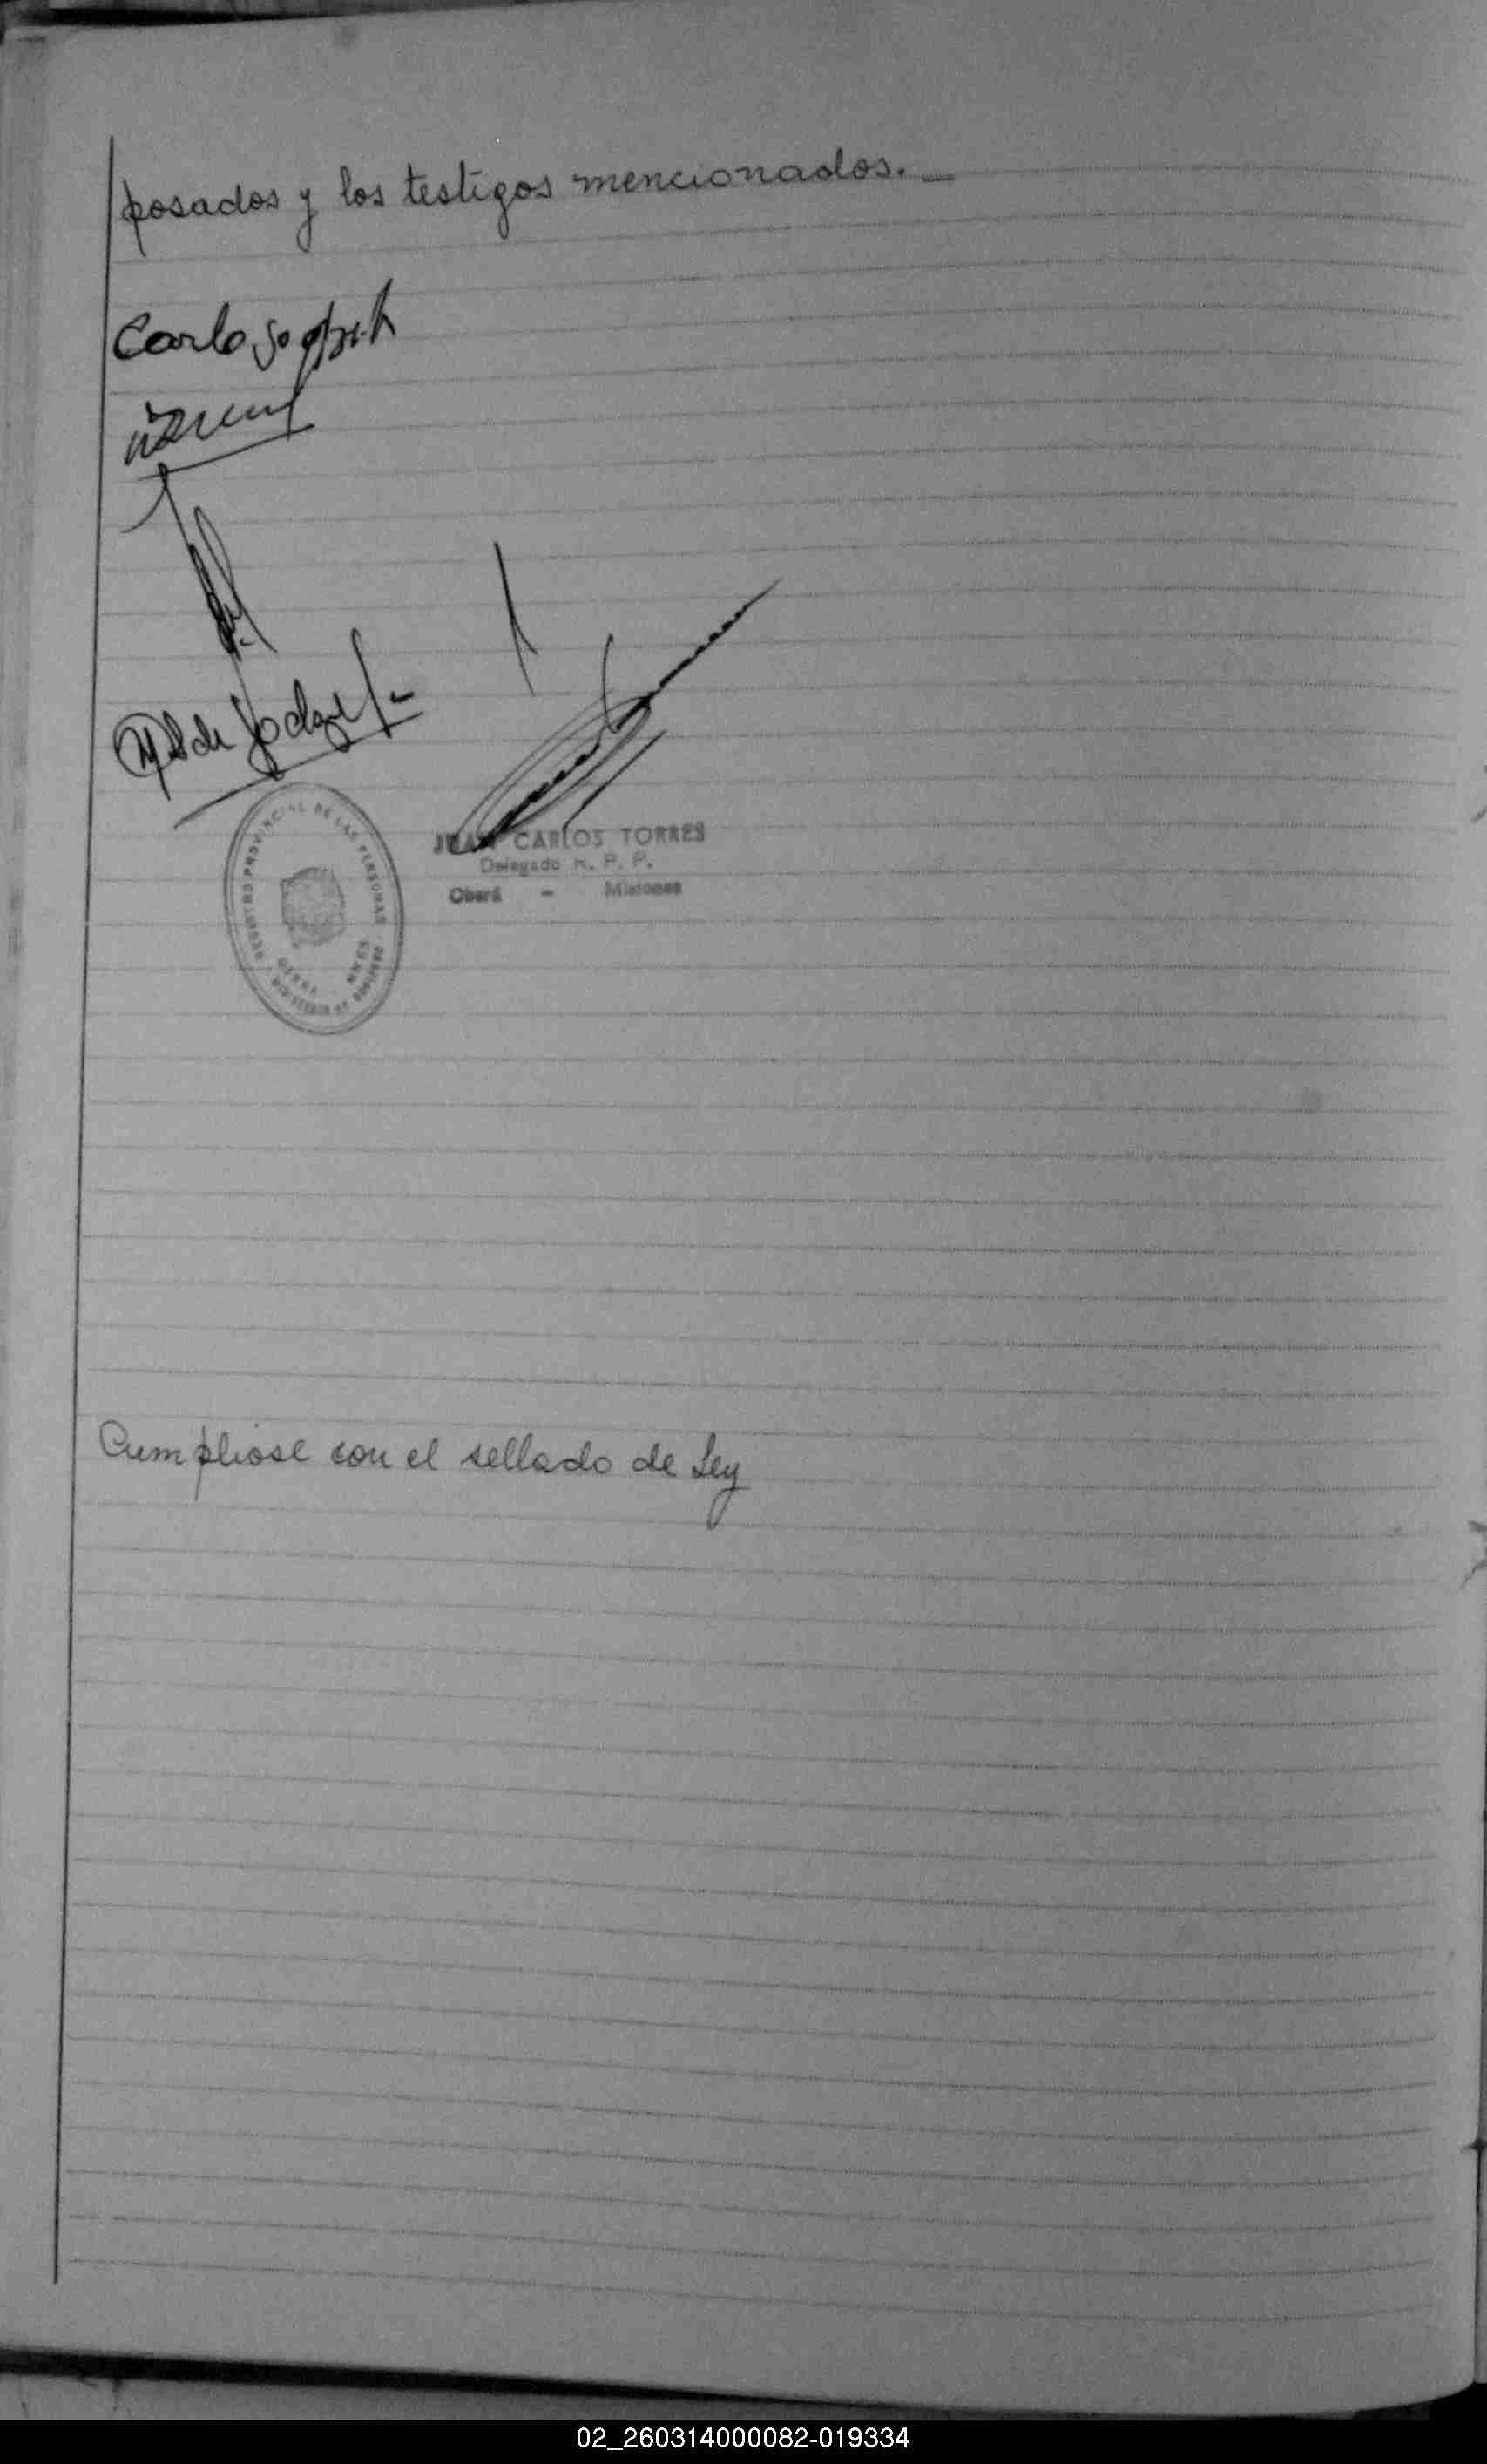 posados y los testigos mencionados. —
Carlos
JUAN CARLOS TORRES
Delegado R. P. P.
Oberá - Misiones
REGISTRO PROVINCIAL DE LAS PERSONAS
OBERA - MNES
MINISTERIO DE GOBIERNO
Cumpliose con el sellado de Ley
02_260314000082-019334